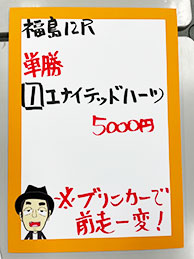 福島12R
単勝
1 エナイテッドハーツ
5000円
※ブリンカーで
前走一変!